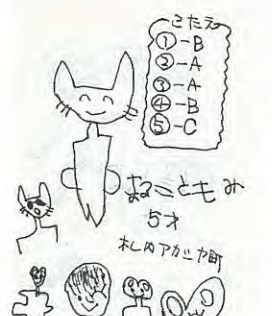 こたえ
①-B
②-A
③-A
④-B
⑤-C
5才
札内アカシヤ町